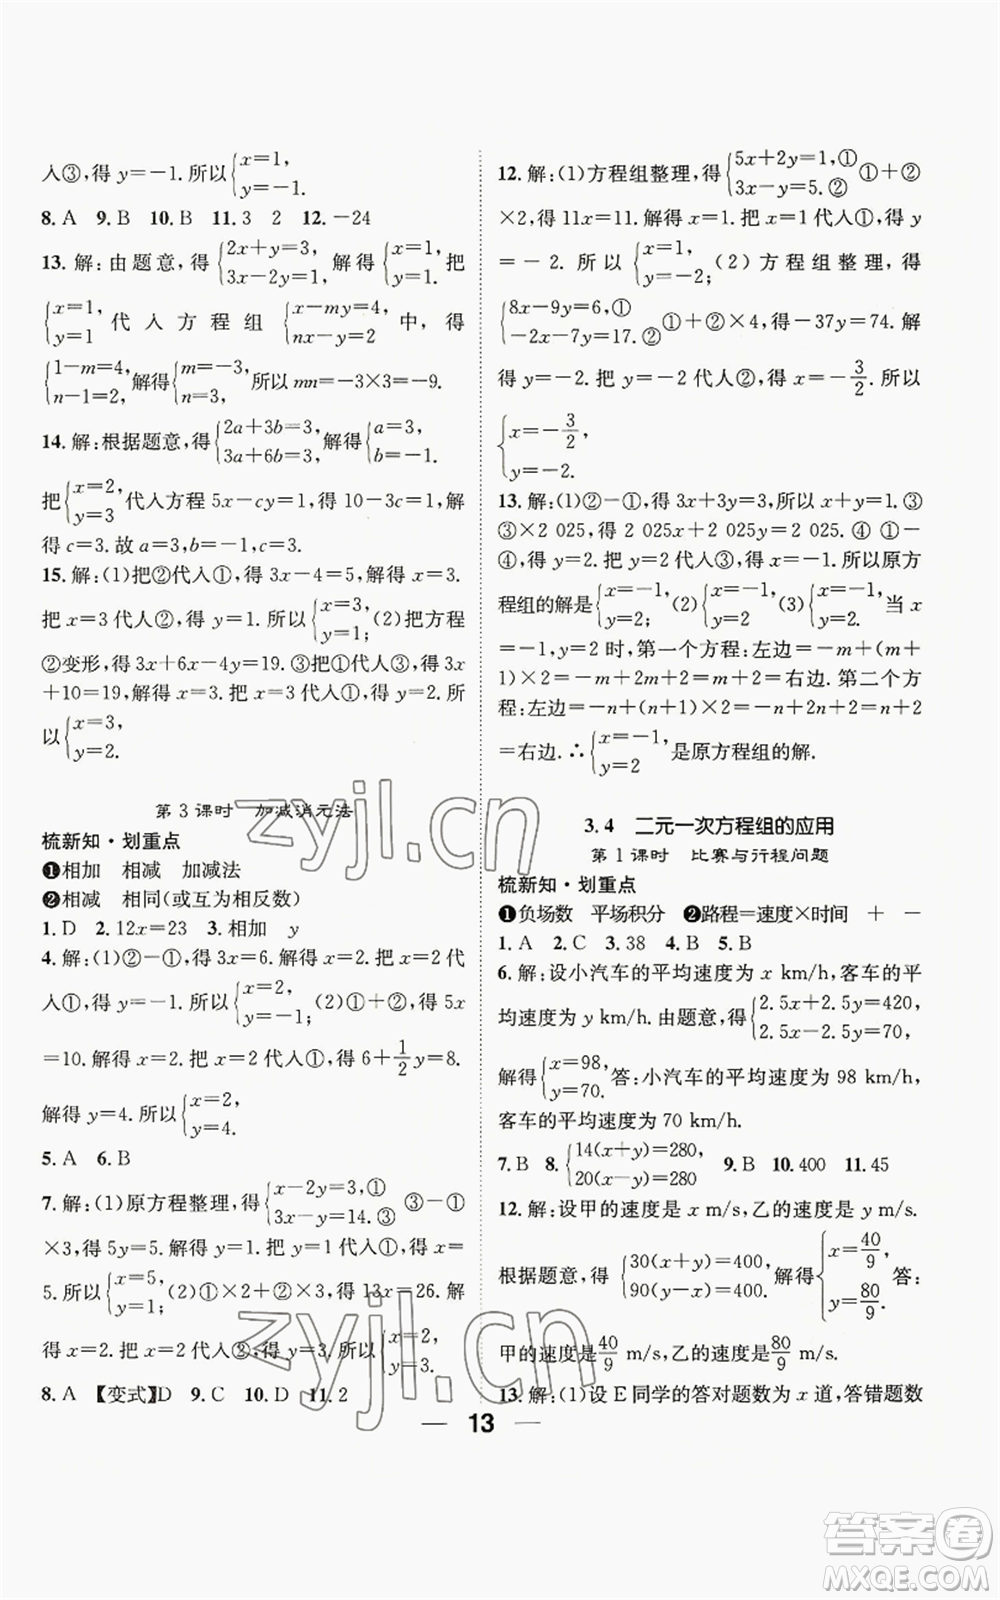 人③,得 y=-1.所以{x=1, y=-1.
8. A 9. B 10. B 11. 3 2 12. -24
13. 解:由题意,得{2x+y=3, 3x-2y=1. 解得{x=1, y=1. 把
{x=1, y=1 代人方程组 {x-my=4, nx-y=2 中,得
{1-m=4, n-1=2, 解得{m=-3, n=3, 所以 mn=-3×3=-9.
14. 解:根据题意,得{2a+3b=3, 3a+6b=3, 解得{a=3, b=-1.
把{x=2, y=3 代人方程 5x-cy=1,得 10-3c=1,解
得 c=3.故 a=3,b=-1,c=3.
15. 解:(1)把②代人①,得 3x-4=5,解得 x=3.
把 x=3 代人②,得 y=1.所以{x=3, y=1; (2)把方程
②变形,得 3x+6x-4y=19.③把①代人③,得 3x
+10=19,解得 x=3.把 x=3 代人①,得 y=2.所
以{x=3, y=2.
第 3 课时 加减消元法
梳新知·划重点
❶相加 相减 加减法
❷相减 相同(或互为相反数)
1. D 2. 12x=23 3. 相加 y
4. 解:(1)②-①,得 3x=6.解得 x=2.把 x=2 代
人①,得 y=-1.所以{x=2, y=-1; (2)①+②,得 5x
=10.解得 x=2.把 x=2 代人①,得 6+1/2y=8.
解得 y=4.所以{x=2, y=4.
5. A 6. B
7. 解:(1)原方程整理,得{x-2y=3,① 3x-y=14.③ ③-①
×3,得 5y=5.解得 y=1.把 y=1 代人①,得 x=
5.所以{x=5, y=1; (2)①×2+②×3,得 13x=26.解
得 x=2.把 x=2 代人②,得 y=3.所以{x=2, y=3.
8. A 【变式】D 9. C 10. D 11. 2
12. 解:(1)方程组整理,得{5x+2y=1,① 3x-y=5.② ①+②
×2,得 11x=11.解得 x=1.把 x=1 代人①,得 y
=-2.所以{x=1, y=-2; (2)方程组整理,得
{8x-9y=6,① -2x-7y=17.② ①+②×4,得-37y=74.解
得 y=-2.把 y=-2 代人②,得 x=-3/2.所以
{x=-3/2, y=-2.
13. 解:(1)②-①,得 3x+3y=3,所以 x+y=1.③
③×2 025,得 2 025x+2 025y=2 025.④ ①-
④,得 y=2.把 y=2 代人③,得 x=-1.所以原方
程组的解是{x=-1, y=2; (2){x=-1, y=2 (3){x=-1, y=2 当 x
=-1,y=2 时,第一个方程:左边=-m+(m+
1)×2=-m+2m+2=m+2=右边.第二个方
程:左边=-n+(n+1)×2=-n+2n+2=n+2
=右边.∴{x=-1, y=2 是原方程组的解.
3.4 二元一次方程组的应用
第 1 课时 比赛与行程问题
梳新知·划重点
❶负场数 平场积分 ❷路程=速度×时间 + -
1. A 2. C 3. 38 4. B 5. B
6. 解:设小汽车的平均速度为 x km/h,客车的平
均速度为 y km/h.由题意,得{2.5x+2.5y=420, 2.5x-2.5y=70,
解得{x=98, y=70. 答:小汽车的平均速度为 98 km/h,
客车的平均速度为 70 km/h.
7. B 8. {14(x+y)=280, 20(x-y)=280 9. B 10. 400 11. 45
12. 解:设甲的速度是 x m/s,乙的速度是 y m/s.
根据题意,得 {30(x+y)=400, 90(y-x)=400. 解得{x=40/9, y=80/9. 答:
甲的速度是40/9 m/s,乙的速度是80/9 m/s.
13. 解:(1)设 E 同学的答对题数为 x 道,答错题数
13
zyjl.cn
zyjl.cn
答案卷
MXQE.COM